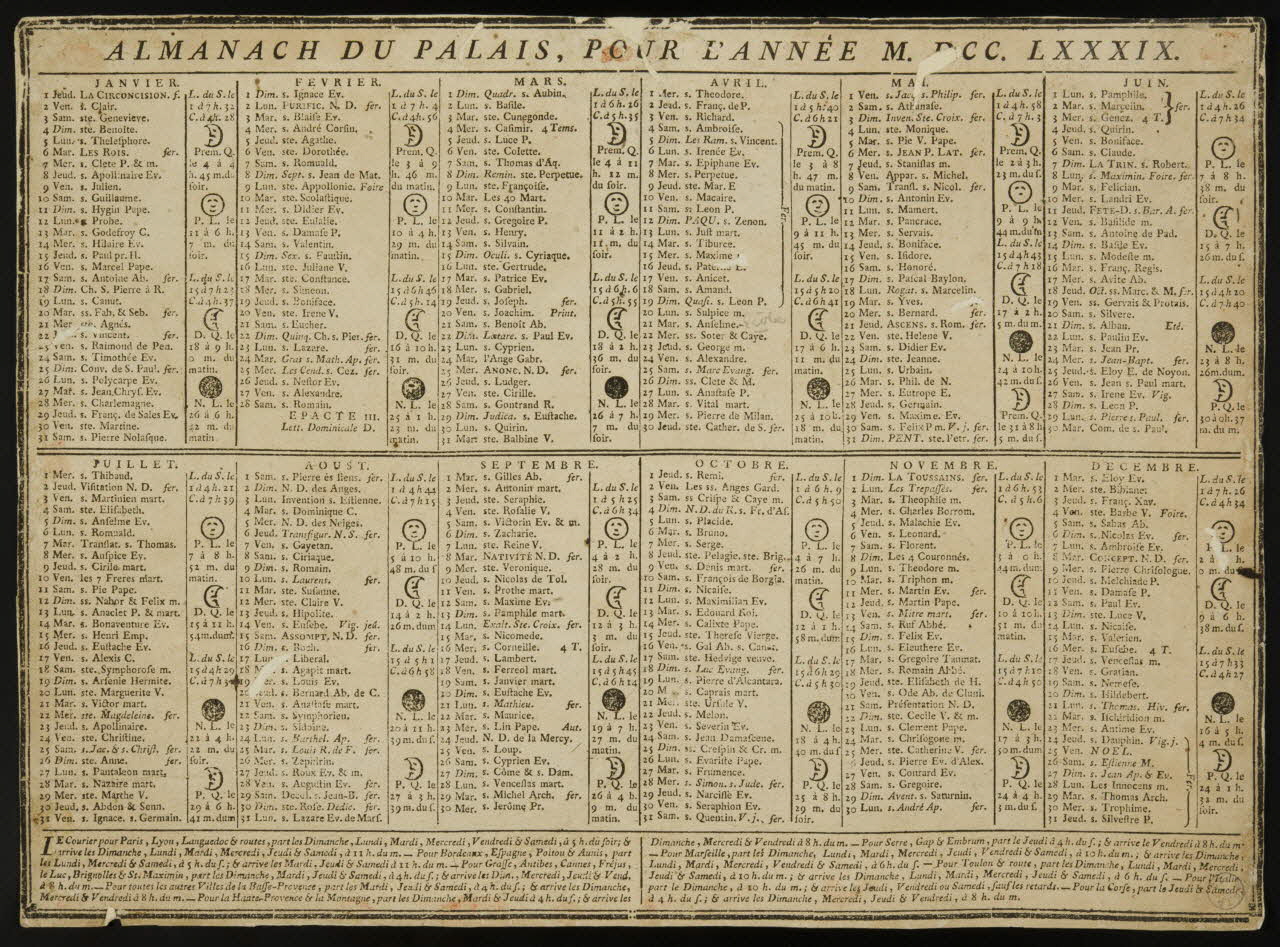 ALMANACH DU PALAIS, POUR L'ANNÉE M. DCC. LXXXIX.
JANVIER.
1 Jeud. LA CIRCONCISION. f.
2 Ven. s. Clair.
3 Sam. ste. Genevieve.
4 Dim. ste. Benoîte.
5 Lun. s. Thelesphore.
6 Mar. LES ROIS. fer.
7 Mer. s. Clete P. & m.
8 Jeud. s. Apollinaire Ev.
9 Ven. s. Julien.
10 Sam. s. Guillaume.
11 Dim. s. Hygin Pape.
12 Lun. s. Probe.
13 Mar. s. Godefroy C.
14 Mer. s. Hilaire Ev.
15 Jeud. s. Paul pr. H.
16 Ven. s. Marcel Pape.
17 Sam. s. Antoine Ab. fer.
18 Dim. Ch. S. Pierre à R.
19 Lun. s. Canut.
20 Mar. ss. Fab. & Seb. fer.
21 Mer. ste. Agnés.
22 Vincent. fer.
23 Ven. s. Raimond de Pen.
24 Sam. s. Timothée Ev.
25 Dim. Conv. de S. Paul. fer.
26 Lun. s. Polycarpe Ev.
27 Mar. s. Jean Chryf. Ev.
28 Mer. s. Charlemagne.
29 Jeud. s. Franç. de Sales Ev.
30 Ven. ste. Martine.
31 Sam. s. Pierre Nolasque.
L. du S. le
1 à 7 h. 32
C. à 4 h. 28
Prem. Q.
le 4 à 4
h. 45 m. du
soir.
P. L. le
11 à 6 h.
7 m. du
soir.
L. du S. le
15 à 7 h 23
C. à 4 h. 37
D. Q. le
18 à 9 h.
0 m. du
matin.
N. L. le
26 à 6 h.
42 m. du
matin.
FEVRIER.
1 Dim. s. Ignace Ev.
2 Lun. PURIFIC. N. D. fer.
3 Mar. s. Blaise Ev.
4 Mer. s. André Corsin.
5 Jeud. ste. Agathe.
6 Ven. ste. Dorothée.
7 Sam. s. Romuald.
8 Dim. Sept. s. Jean de Mat.
9 Lun. ste. Appollonie. Foire
10 Mar. ste. Scolastique.
11 Mer. s. Didier Ev.
12 Jeud. ste. Eulalie.
13 Ven. s. Damase P.
14 Sam. s. Valentin.
15 Dim. Sex. s. Faustin.
16 Lun. ste. Juliane V.
17 Mar. ste. Constance.
18 Mer. s. Simeon.
19 Jeud. s. Boniface.
20 Ven. ste. Irene V.
21 Sam. s. Eucher.
22 Dim. Quinq. Ch. s. Pier. fer.
23 Lun. s. Lazare. fer.
24 Mar. Gras s. Math. Ap. fer.
25 Mer. Les Cend. s. Cez. fer.
26 Jeud. s. Nestor Ev.
27 Ven. s. Alexandre.
28 Sam. s. Romain.
EPACTE III.
Lett. Dominicale D.
L. du S. le
1 à 7 h. 4
C. à 4 h. 56
Prem. Q.
le 3 à 9
h. 46 m.
du matin.
P. L. le
10 à 4 h.
29 m. du
matin.
L. du S. le
15 à 6 h 46
C. à 5 h. 14
D. Q. le
16 à 10 h.
31 m. du
soir.
N. L. le
25 à 1 h.
25 m. du
matin.
MARS.
1 Dim. Quadr. s. Aubin.
2 Lun. s. Basile.
3 Mar. ste. Cunegonde.
4 Mer. s. Casimir. 4 Tems.
5 Jeud. s. Luce P.
6 Ven. ste. Colette.
7 Sam. s. Thomas d'Aq.
8 Dim. Remin. ste. Perpetue.
9 Lun. ste. Françoise.
10 Mar. Les 40 Mart.
11 Mer. s. Constantin.
12 Jeud. s. Gregoire P.
13 Ven. s. Henry.
14 Sam. s. Silvain.
15 Dim. Oculi. s. Cyriaque.
16 Lun. ste. Gertrude.
17 Mar. s. Patrice Ev.
18 Mer. s. Gabriel.
19 Jeud. s. Joseph. fer.
20 Ven. s. Joachim. Print.
21 Sam. s. Benoît Ab.
22 Dim. Lætare. s. Paul Ev.
23 Lun. s. Cyprien.
24 Mar. l'Ange Gabr.
25 Mer. ANONC. N. D. fer.
26 Jeud. s. Ludger.
27 Ven. ste. Cirille.
28 Sam. s. Gontrand R.
29 Dim. Judica. s. Eustache.
30 Lun. s. Quirin.
31 Mar. ste. Balbine V.
L. du S. le
1 à 6 h. 26
C. à 5 h. 35
Prem. Q.
le 4 à 11
h. 12 m.
du soir.
P. L. le
11 à 2 h.
11 m. du
soir.
L. du S. le
15 à 6 h. 6
C. à 5 h. 55
D. Q. le
18 à 2 h.
36 m. du
soir.
N. L. le
26 à 7 h.
7 m. du
soir.
AVRIL.
1 Mer. s. Theodore.
2 Jeud. s. Franç. de P.
3 Ven. s. Richard.
4 Sam. s. Ambroise.
5 Dim. Les Ram. s. Vincent.
6 Lun. s. Irenée Ev.
7 Mar. s. Epiphane Ev.
8 Mer. s. Perpetue.
9 Jeud. ste. Mar. E
10 Ven. s. Macaire.
11 Sam. s. Leon P.
12 Dim. PAQU. s. Zenon.
13 Lun. s. Just mart.
14 Mar. s. Tiburce.
15 Mer. s. Maxime
16 Jeud. s. Paterne E.
17 Ven. s. Anicet.
18 Sam. s. Amand.
19 Dim. Quasi. s. Leon P.
20 Lun. s. Sulpice m.
21 Mar. s. Anselme.
22 Mer. ss. Soter & Caye.
23 Jeud. s. George m.
24 Ven. s. Alexandre.
25 Sam. s. Marc Evang. fer.
26 Dim. ss. Clete & M.
27 Lun. s. Anastase P.
28 Mar. s. Vital mart.
29 Mer. s. Pierre de Milan.
30 Jeud. ste. Cather. de S. fer.
Fer.
L. du S. le
1 à 5 h. 40
C. à 6 h 21
Prem. Q.
le 3 à 8
h. 47 m.
du matin.
P. L. le
9 à 11 h.
45 m. du
soir.
L. du S. le
15 à 5 h 20
C. à 6 h 41
D. Q. le
17 à 6 h.
11 m. du
matin.
N. L. le
25 à 10 h.
18 m. du
matin.
MAI.
1 Ven. s. Jaq. s. Philip. fer.
2 Sam. s. Athanase.
3 Dim. Inven. Ste. Croix. fer.
4 Lun. ste. Monique.
5 Mar. s. Pie V. Pape.
6 Mer. s. JEAN P. LAT. fer.
7 Jeud. s. Stanislas m.
8 Ven. Appar. s. Michel.
9 Sam. Transl. s. Nicol. fer.
10 Dim. s. Antonin Ev.
11 Lun. s. Mamert.
12 Mar. s. Pancrace.
13 Mer. s. Servais.
14 Jeud. s. Boniface.
15 Ven. s. Isidore.
16 Sam. s. Honoré.
17 Dim. s. Pascal Baylon.
18 Lun. Rogat. s. Marcelin.
19 Mar. s. Yves. fer.
20 Mer. s. Bernard. fer.
21 Jeud. ASCENS. s. Rom. fer.
22 Ven. ste. Helene V.
23 Sam. s. Didier Ev.
24 Dim. ste. Jeanne.
25 Lun. s. Urbain.
26 Mar. s. Phil. de N.
27 Mer. s. Eutrope E.
28 Jeud. s. Germain.
29 Ven. s. Maxime. Ev.
30 Sam. s. Felix P m. V. j. fer.
31 Dim. PENT. ste. Petr. fer.
L. du S. le
1 à 4 h. 58
C. à 7 h. 3
Prem. Q.
le 2 à 3 h.
23 m. du f.
P. L. le
9 à 9 h
44 m. du m
L. du S. le
15 à 4 h 43
C. à 7 h 18
D. Q. le
17 à 2 h.
5 m. du m.
N. L. le
24 à 10 h.
42 m. du f.
Prem. Q.
le 31 à 8 h
5 m. du f.
JUIN.
1 Lun. s. Pamphile.
2 Mar. s. Marcelin.
3 Mer. s. Genez. 4 T. fer.
4 Jeud. s. Quirin.
5 Ven. s. Boniface.
6 Sam. s. Claude.
7 Dim. LA TRIN. s. Robert.
8 Lun. s. Maximin. Foire. fer.
9 Mar. s. Felician.
10 Mer. s. Landri Ev.
11 Jeud. FETE-D. s. Bar. A. fer.
12 Ven. s. Basilide m.
13 Sam. s. Antoine de Pad.
14 Dim. s. Basile Ev.
15 Lun. s. Modeste m.
16 Mar. s. Franç. Regis.
17 Mer. s. Avite Ab.
18 Jeud. Oct. ss. Marc. & M. fer.
19 Ven. ss. Gervais & Protais.
20 Sam. s. Silvere.
21 Dim. s. Alban. Eté.
22 Lun. s. Paulin Ev.
23 Mar. s. Jean Pr.
24 Mer. s. Jean-Bapt. fer.
25 Jeud. s. Eloy E. de Noyon.
26 Ven. s. Jean s. Paul mart.
27 Sam. s. Irene Ev. Vig.
28 Dim. s. Leon P.
29 Lun. s. Pierre s. Paul. fer.
30 Mar. Com. de s. Paul.
L. du S. le
1 à 4 h. 26
C. à 7 h 34
P. L. le
7 à 8 h.
38 m. du
soir.
D. Q. le
15 à 7 h.
26 m. du f.
L. du S. le
15 à 4 h 20
C. à 7 h 40
N. L. le
23 à 8 h
26 m. dum.
P. Q. le
30 à 0 h. 37
m. du m.
JUILLET.
1 Mer. s. Thibaud.
2 Jeud. Visitation N. D. fer.
3 Ven. s. Martinien mart.
4 Sam. ste. Elisabeth.
5 Dim. s. Anselme Ev.
6 Lun. s. Romuald.
7 Mar. Translat. s. Thomas.
8 Mer. s. Auspice Ev.
9 Jeud. s. Cirile mart.
10 Ven. les 7 Freres mart.
11 Sam. s. Pie Pape.
12 Dim. ss. Nabor & Felix m.
13 Lun. s. Anaclet P. & mart.
14 Mar. s. Bonaventure Ev.
15 Mer. s. Henri Emp.
16 Jeud. s. Eustache Ev.
17 Ven. s. Alexis C.
18 Sam. ste. Symphorose m.
19 Dim. s. Arsenie Hermite.
20 Lun. ste. Marguerite V.
21 Mar. s. Victor mart.
22 Mer. ste. Magdeleine. fer.
23 Jeud. s. Apollinaire.
24 Ven. ste. Christine.
25 Sam. s. Jac. & s. Christ. fer.
26 Dim. ste. Anne. fer.
27 Lun. s. Pantaleon mart.
28 Mar. s. Nazaire mart.
29 Mer. ste. Marthe V.
30 Jeud. s. Abdon & Senn.
31 Ven. s. Ignace. s. Germain.
L. du S. le
1 à 4 h. 21
C. à 7 h 39
P. L. le
7 à 8 h.
52 m. du
matin.
D. Q. le
15 à 11 h.
54 m. dum.
L. du S. le
15 à 4 h 29
C. à 7 h
N. L. le
21 à 4 h.
22 m. du
soir.
P. Q. le
29 à 6 h.
41 m. dum
AOUST.
1 Sam. s. Pierre ès liens. fer.
2 Dim. N. D. des Anges.
3 Lun. Invention s. Estienne.
4 Mar. s. Dominique C.
5 Mer. N. D. des Neiges.
6 Jeud. Transfigur. N. S. fer.
7 Ven. s. Gayetan.
8 Sam. s. Ciriaque.
9 Dim. s. Romain.
10 Lun. s. Laurens. fer.
11 Mar. ste. Susanne.
12 Mer. ste. Claire V.
13 Jeud. s. Hipolite.
14 Ven. s. Eusebe. Vig. jeû.
15 Sam. ASSOMPT. N. D. fer.
16 Dim. s. Roch. fer.
17 Lun. s. Liberal.
18 Mar. s. Agapit mart.
19 Mer. s. Louis Ev.
20 Jeud. s. Bernard Ab. de C.
21 Ven. s. Anastase mart.
22 Sam. s. Symphorien.
23 Dim. s. Sidoine.
24 Lun. s. Barthel. Ap. fer.
25 Mar. s. Louis R. de F. fer.
26 Mer. s. Zephirin.
27 Jeud. s. Roux Ev. & m.
28 Ven. s. Augustin Ev. fer.
29 Sam. Decol. s. Jean-B. fer.
30 Dim. ste. Rose. Dedic. fer.
31 Lun. s. Lazare Ev. de Mars.
L. du S. le
1 à 4 h 44
C. à 7 h 15
P. L. le
5 à 10 h.
48 m. du f
D. Q. le
14 à 2 h.
26 m. dum
L. du S. le
15 à 5 h 1
C. à 6 h 58
N. L. le
20 à 11 h.
39 m. du f.
P. Q. le
27 à 3 h.
39 m. du f.
SEPTEMBRE.
1 Mar. s. Gilles Ab. fer.
2 Mer. s. Antonin mart.
3 Jeud. ste. Seraphie.
4 Ven. ste. Rosalie V.
5 Sam. s. Victorin Ev. & m.
6 Dim. s. Zacharie.
7 Lun. ste. Reine V.
8 Mar. NATIVITÉ N. D. fer.
9 Mer. ste. Veronique.
10 Jeud. s. Nicolas de Tol.
11 Ven. s. Prothe mart.
12 Sam. s. Maxime Ev.
13 Dim. s. Pamphile mart.
14 Lun. Exalt. Ste. Croix. fer.
15 Mar. s. Nicomede.
16 Mer. s. Corneille. 4 T.
17 Jeud. s. Lambert.
18 Ven. s. Ferreol mart.
19 Sam. s. Janvier mart.
20 Dim. s. Eustache Ev.
21 Lun. s. Mathieu. fer.
22 Mar. s. Maurice.
23 Mer. s. Lin Pape. Aut.
24 Jeud. N. D. de la Mercy.
25 Ven. s. Loup.
26 Sam. s. Cyprien Ev.
27 Dim. s. Côme & s. Dam.
28 Lun. s. Venceslas mart.
29 Mar. s. Michel Arch. fer.
30 Mer. s. Jerôme Pr.
L. du S. le
1 à 5 h 25
C. à 6 h 34
P. L. le
4 à 2 h.
28 m. du
soir.
D. Q. le
12 à 3 h.
3 m. du
soir.
L. du S. le
15 à 5 h 45
C. à 6 h 14
N. L. le
19 à 7 h.
27 m. du
matin.
P. Q. le
26 à 4 h.
9 m. du
matin.
OCTOBRE.
1 Jeud. s. Remi. fer.
2 Ven. Les ss. Anges Gard.
3 Sam. ss. Crispe & Caye m.
4 Dim. N. D. du R. s. Fr. d'As.
5 Lun. s. Placide.
6 Mar. s. Bruno.
7 Mer. s. Serge.
8 Jeud. ste. Pelagie. ste. Brig.
9 Ven. s. Denis mart. fer.
10 Sam. s. François de Borgia.
11 Dim. s. Nicaise.
12 Lun. s. Maximilian Ev.
13 Mar. s. Edouard Roi.
14 Mer. s. Calixte Pape.
15 Jeud. ste. Therese Vierge.
16 Ven. s. Gal Ab. s. Canat.
17 Sam. ste. Hedvige veuve.
18 Dim. s. Luc Evang. fer.
19 Lun. s. Pierre d'Alcantara.
20 M s. Caprais mart.
21 Mer. ste. Ursule V.
22 Jeud. s. Melon.
23 Ven. s. Severin Ev.
24 Sam. s. Jean Damascene.
25 Dim. ss. Crespin & Cr. m.
26 Lun. s. Evariste Pape.
27 Mar. s. Frumence.
28 Mer. s. Simon s. Jude. fer.
29 Jeud. s. Narcisse Ev.
30 Ven. s. Seraphion Ev.
31 Sam. s. Quentin. V. j. fer.
L. du S. le
1 à 6 h. 9
C. à 5 h 50
P. L. le
4 à 7 h.
26 m. du
matin.
D. Q. le
12 à 1 h.
58 m. dum
L. du S. le
15 à 6 h 29
C. à 5 h 30
N. L. le
18 à 4 h.
40 m. du f.
P. Q. le
25 à 8 h.
29 m. du
soir.
NOVEMBRE.
1 Dim. LA TOUSSAINS. fer.
2 Lun. Les Trepassés. fer.
3 Mar. s. Theophile m.
4 Mer. s. Charles Borrom.
5 Jeud. s. Malachie Ev.
6 Ven. s. Leonard.
7 Sam. s. Florent.
8 Dim. Les 4 Couronnés.
9 Lun. s. Theodore m.
10 Mar. s. Triphon m.
11 Mer. s. Martin Ev. fer.
12 Jeud. s. Martin Pape.
13 Ven. s. Mitre mart. fer.
14 Sam. s. Ruf Abbé.
15 Dim. s. Felix Ev.
16 Lun. s. Eleuthere Ev.
17 Mar. s. Gregoire Taumat.
18 Mer. s. Romain Abbé.
19 Jeud. ste. Elisabeth de H.
20 Ven. s. Ode Ab. de Cluni.
21 Sam. Présentation N. D.
22 Dim. ste. Cecile V. & m.
23 Lun. s. Clement Pape.
24 Mar. s. Chrisogone m.
25 Mer. ste. Catherine V. fer.
26 Jeud. s. Pierre Ev. d'Alex.
27 Ven. s. Conrard Ev.
28 Sam. s. Gregoire.
29 Dim. Avent. s. Saturnin.
30 Lun. s. André Ap. fer.
L. du S. le
1 à 6 h. 53
C. à 5 h. 6
P. L. le
3 à 1 h.
51 m. du f.
D. Q. le
10 à 10 h.
31 m. du
matin.
L. du S. le
15 à 7 h 10
C. à 4 h 50
N. L. le
17 à 3 h.
50 m. dum
P. Q. le
24 à 4 h.
3 m. du f.
DECEMBRE.
1 Mar. s. Eloy Ev.
2 Mer. ste. Bibiane.
3 Jeud. s. Franç. Xav.
4 Ven. ste. Barbe V. Foire.
5 Sam. s. Sabas Ab.
6 Dim. s. Nicolas Ev. fer.
7 Lun. s. Ambroise Ev.
8 Mar. CONCEPT. N. D. fer.
9 Mer. s. Pierre Chrisologue.
10 Jeud. s. Melchiade P.
11 Ven. s. Damase P.
12 Sam. s. Paul Ev.
13 Dim. ste. Luce V.
14 Lun. s. Nicaise.
15 Mar. s. Valerien.
16 Mer. s. Eusebe. 4 T.
17 Jeud. s. Venceslas m.
18 Ven. s. Gratian.
19 Sam. s. Nemese.
20 Dim. s. Hildebert.
21 Lun. s. Thomas. Hiv. fer.
22 Mar. s. Itchiridion m.
23 Mer. s. Antime Ev.
24 Jeud. s. Dauphin. Vig. j.
25 Ven. NOEL.
26 Sam. s. Estienne M.
27 Dim. s. Jean Ap. & Ev.
28 Lun. Les Innocens m.
29 Mar. s. Thomas Arch.
30 Mer. s. Trophime.
31 Jeud. s. Silvestre P.
Fer.
L. du S. le
1 à 7 h. 26
C. à 4 h 34
L. le
2 à h.
0 m du
matin.
D. Q. le
9 à 6 h.
38 m du f.
L. du S. le
15 à 7 h 33
C. à 4 h 27
N. L. le
16 à 5 h.
4 m. du f
P. Q. le
24 à 1 h.
32 m. du
soir.
LE Courier pour Paris, Lyon, Languedoc & routes, part les Dimanche, Lundi, Mardi, Mercredi, Vendredi & Samedi, à 5 h. du soir; &
arrive les Dimanche, Lundi, Mardi, Mercredi, Jeudi & Samedi, à 11 h. du m. — Pour Bordeaux, Espagne, Poitou & Aunis, part
les Lundi, Mercredi & Samedi, à 5 h. du f.; & arrive les Mardi, Jeudi & Samedi à 11 h. du m. — Pour Grasse, Antibes, Cannes, Fréjus,
le Luc, Brignolles & St. Maximin, part les Dimanche, Mardi, Jeudi & Samedi, à 4 h. du f.; & arrive les Dim., Mercredi, Jeudi & Vend.
à 8 h. du m. — Pour toutes les autres Villes de la Basse-Provence, part les Mardi, Jeudi & Samedi, à 4 h. du f.; & arrive les Dimanche,
Mercredi & Vendredi à 8 h. du m. — Pour la Haute-Provence & la Montagne, part les Dimanche, Mardi & Jeudi à 4 h. du f.; & arrive les
Dimanche, Mercredi & Vendredi à 8 h. du m. — Pour Serre, Gap & Embrum, part le Jeudi à 4 h. du f.; & arrive le Vendredi à 8 h. du m.
— Pour Marseille, part les Dimanche, Lundi, Mardi, Mercredi, Jeudi, Vendredi & Samedi, à 10 h. du m.; & arrive les Dimanche,
Lundi, Mardi, Mercredi, Vendredi & Samedi, à 6 h. du f. — Pour Toulon & route, part les Dimanche, Lundi, Mardi, Mercredi,
Jeudi & Samedi, à 10 h. du m.; & arrive les Dimanche, Lundi, Mardi, Mercredi, Jeudi & Samedi, à 6 h. du f. — Pour l'Italie,
part le Dimanche, à 10 h. du m.; & arrive les Jeudi, Vendredi ou Samedi, sauf les retards. — Pour la Corse, part le Jeudi & Samedi,
à 4 h. du f.; & arrive les Dimanche, Mercredi, Jeudi & Vendredi, à 8 h. du m.